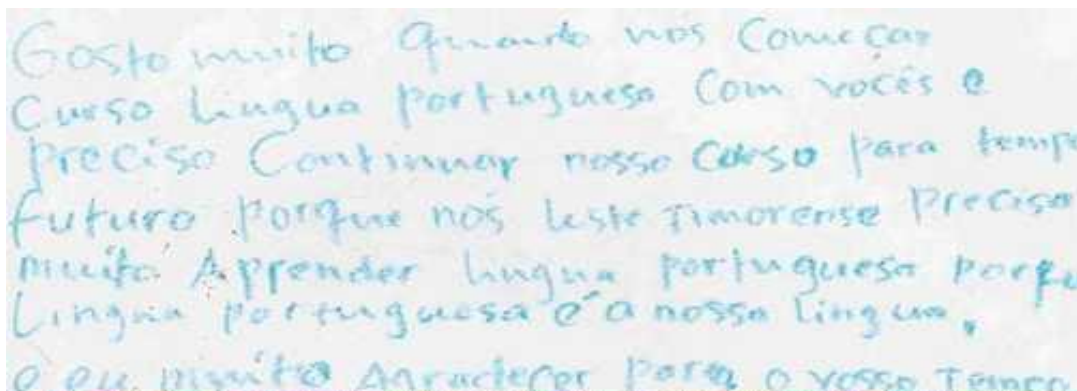 Gosto muito quando nos começar
curso lingua portuguesa com vocês e
preciso continuar nosso curso para tempo
futuro porque nós leste Timorense preciso
muito Apprender lingua portuguesa porqu
Lingua portuguesa é a nossa lingua,
e eu muito Agradecer para o vosso Tempo